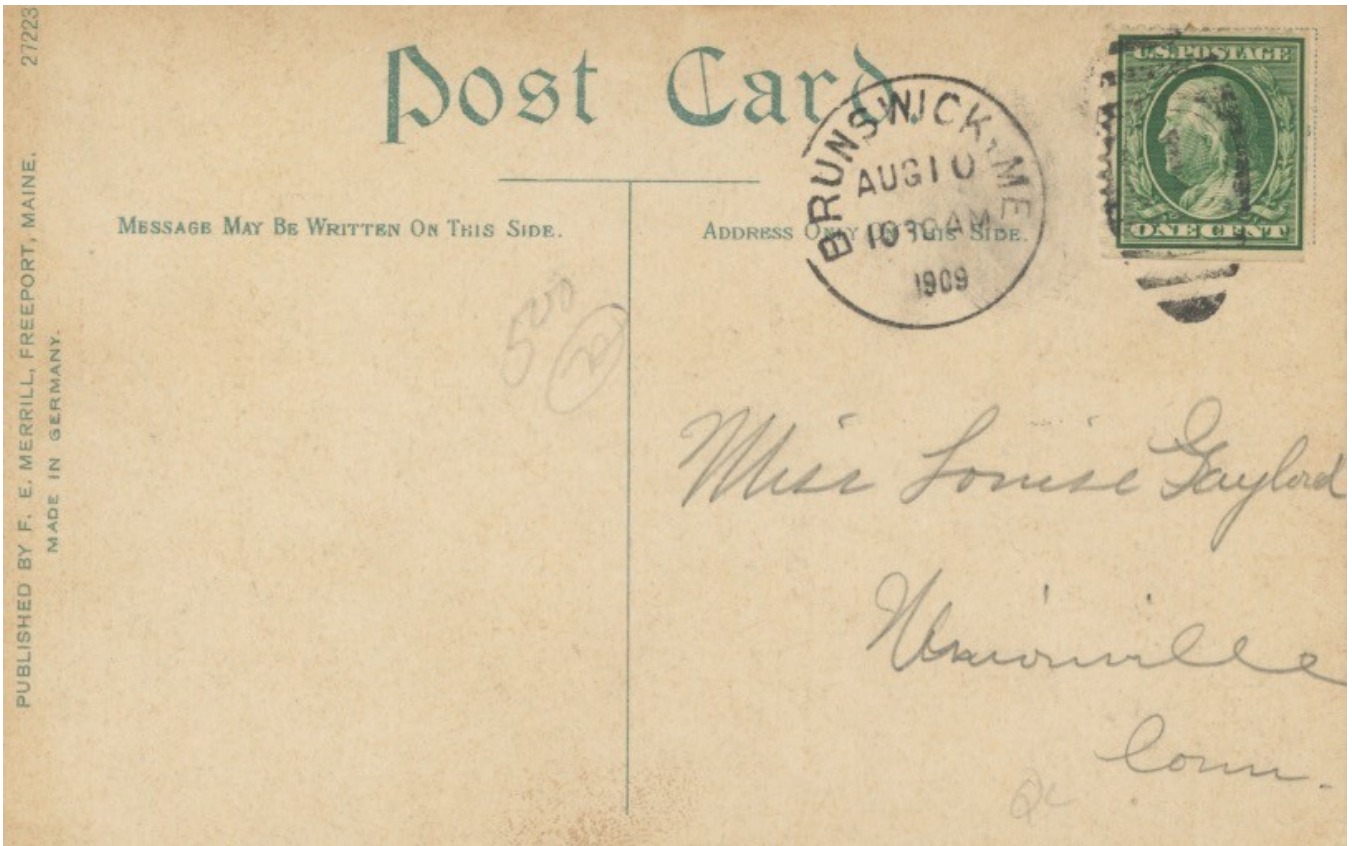 27223
PUBLISHED BY F. E. MERRILL, FREEPORT, MAINE.
MADE IN GERMANY.
Post Card
MESSAGE MAY BE WRITTEN ON THIS SIDE.
ADDRESS ONLY ON THIS SIDE.
BRUNSWICK, ME
AUG 10
1030AM
1909
U.S. POSTAGE
ONE CENT
500
Miss Louise Gaylord
Unionville
Conn.